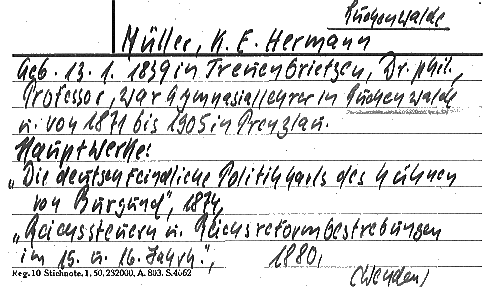 Luckenwalde
Müller, K. E. Hermann
Geb. 13. 1. 1839 in Treuenbrietzen, Dr. phil.,
Professor, war Gymnasiallehrer in Luckenwalde
u. von 1871 bis 1905 in Prenzlau.
Hauptwerke:
„Die deutschfeindliche Politik Karls des Kühnen
von Burgund", 1874,
„Reichssteuern u. Reichsreformbestrebungen
im 15. u. 16. Jahrh.", 1880,
(Wenden)
Reg. 10 Stichnote. 1, 50, 232000, A. 803. S. 4062